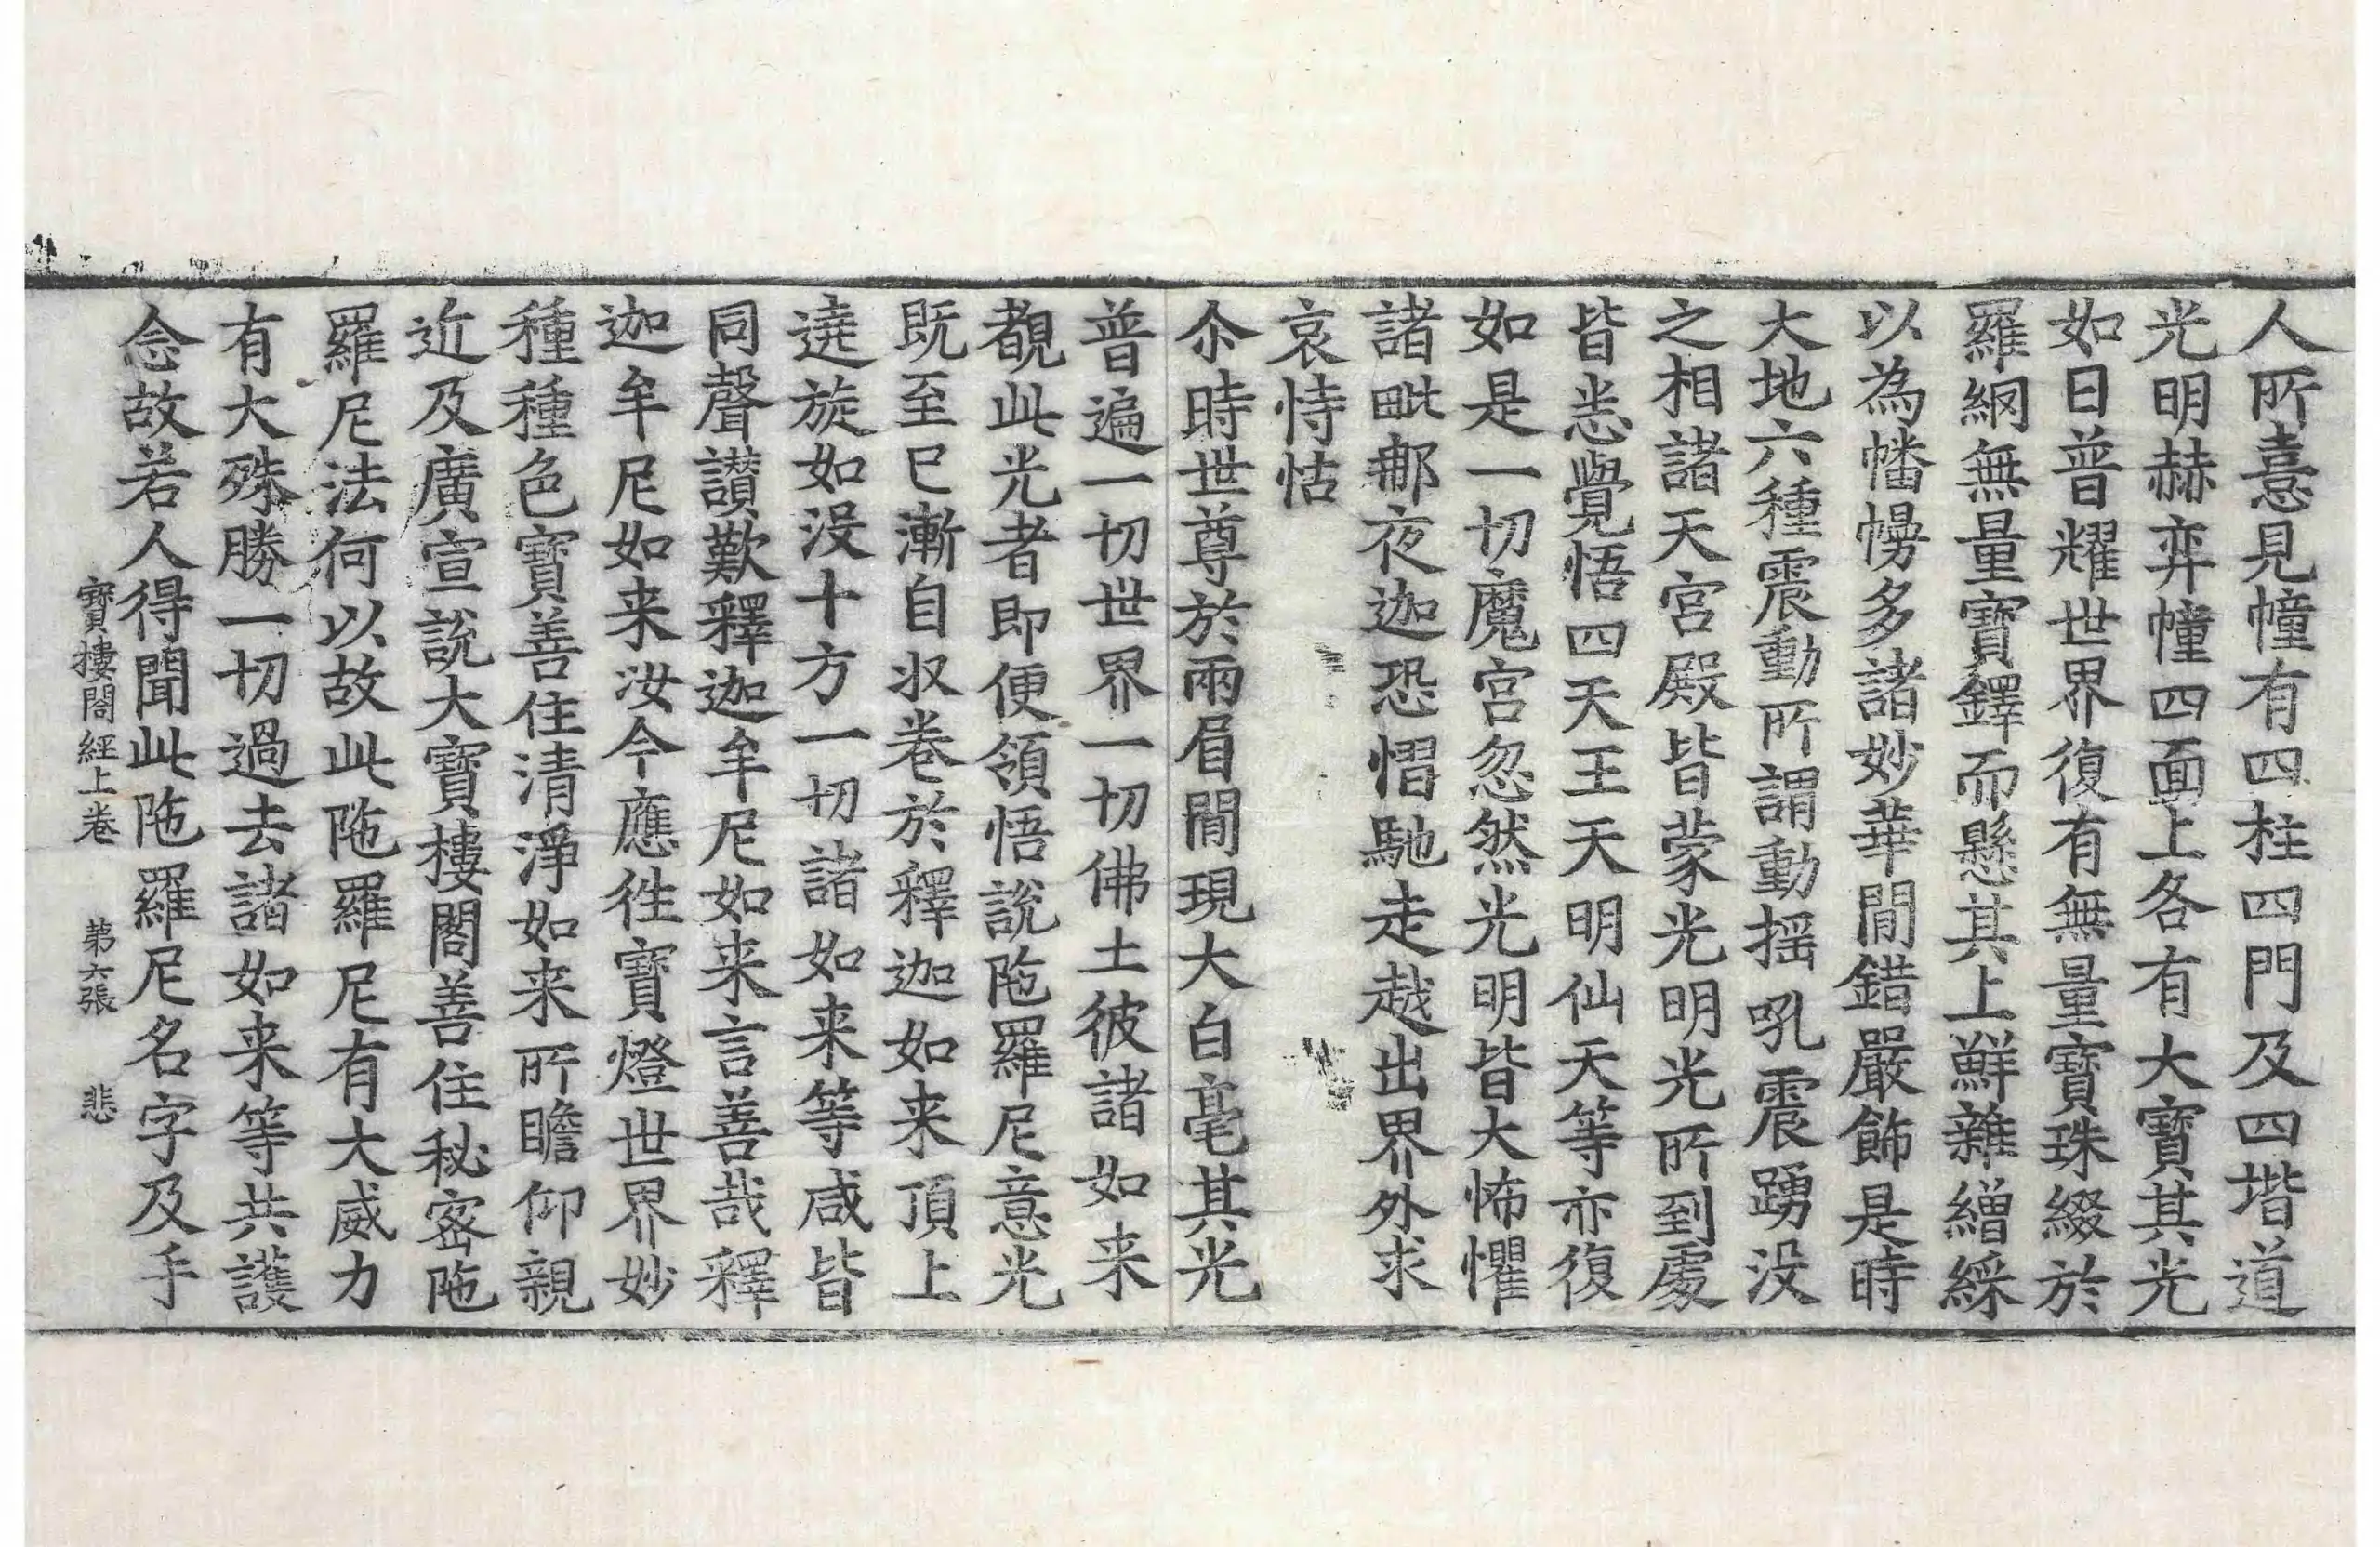 人所憙見幢有四柱四門及四堦道
光明赫弈幢四面上各有大寶其光
如日普耀世界復有無量寶珠綴於
羅網無量寶鐸而懸其上鮮雜繒綵
以為幡幔多諸妙華間錯嚴飾是時
大地六種震動所謂動搖吼震踴没
之相諸天宮殿皆蒙光明光所到處
皆悉覺悟四天王天明仙天等亦復
如是一切魔宮忽然光明皆大怖懼
諸毗那夜迦恐慴馳走越出界外求
哀恃怙
尒時世尊於兩眉間現大白毫其光
普遍一切世界一切佛土彼諸如来
覩此光者即便領悟說陁羅尼意光
既至已漸自收卷於釋迦如来頂上
遶旋如没十方一切諸如来等咸皆
同聲讃歎釋迦牟尼如来言善哉釋
迦牟尼如来汝今應徃寶燈世界妙
種種色寶善住清淨如来所瞻仰親
近及廣宣說大寶樓閣善住秘密陁
羅尼法何以故此陁羅尼有大威力
有大殊勝一切過去諸如来等共護
念故若人得聞此陁羅尼名字及手
寶樓閣經上卷 第六張 悲